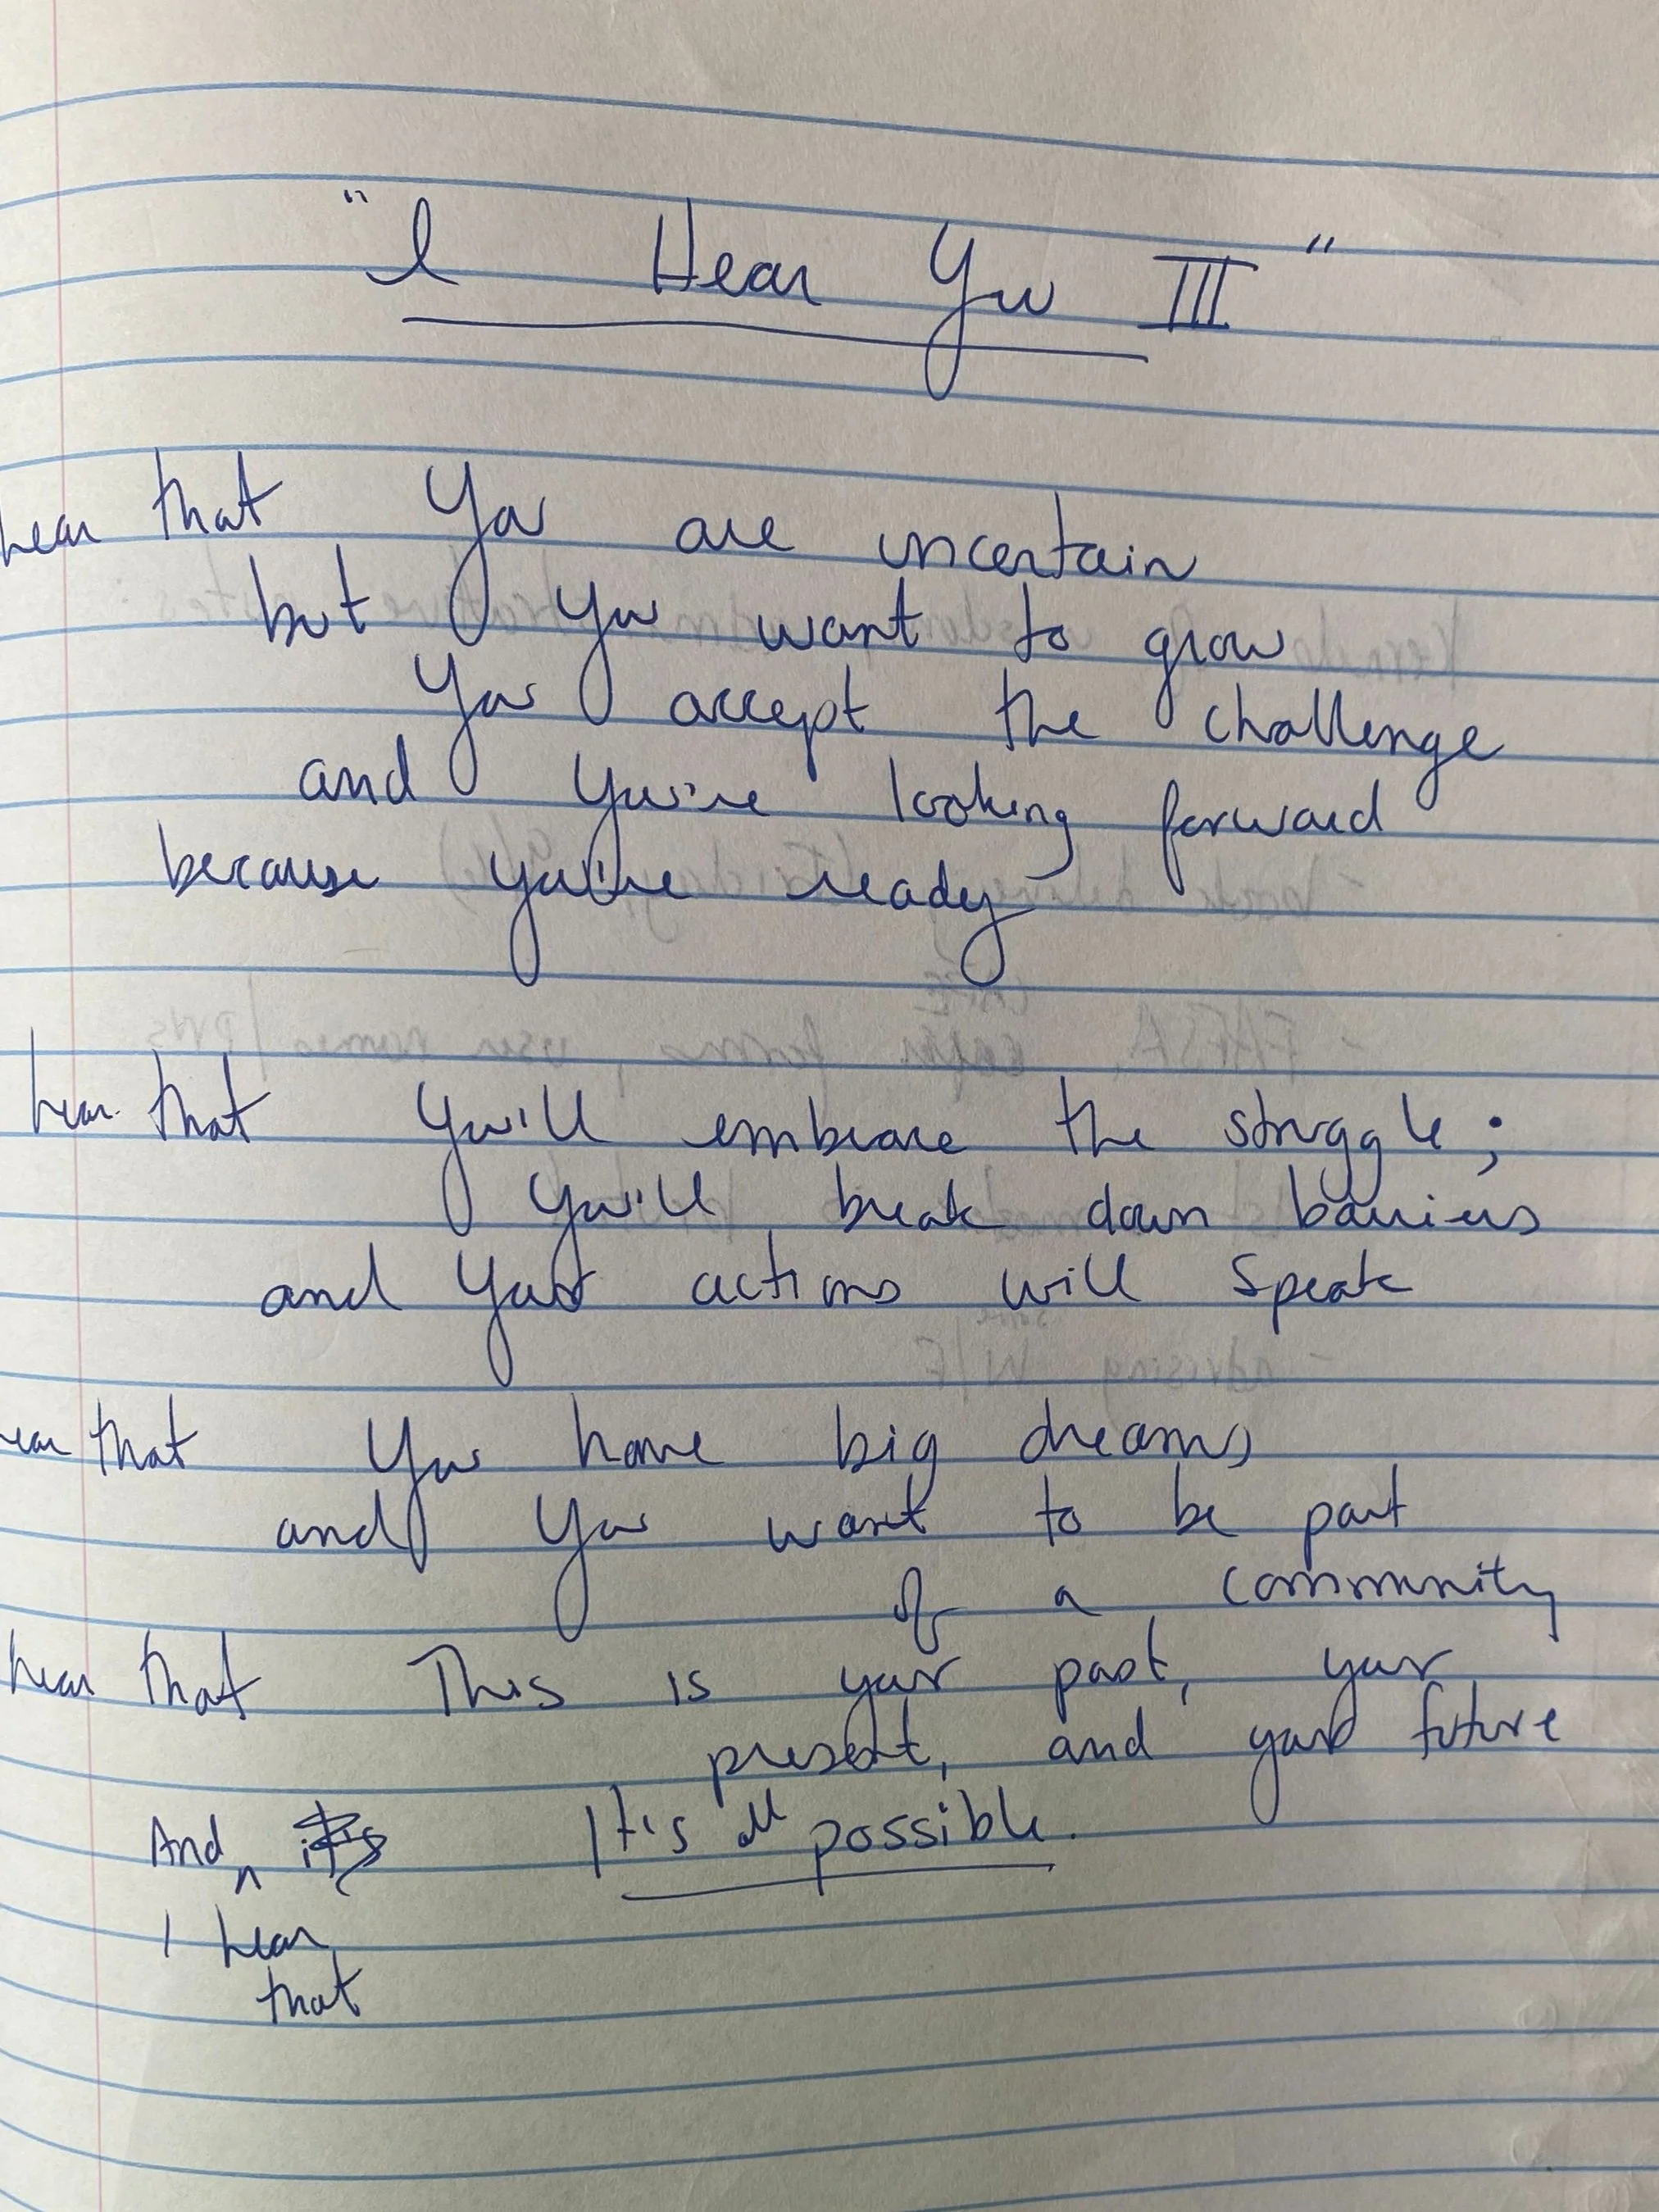 "I Hear You III"
hear that You are uncertain
but you want to grow
You accept the challenge
and you're looking forward
because you're ready
hear that You'll embrace the struggle;
you'll break down barriers
and your actions will speak
ear that You have big dreams
and you want to be part
of a community
hear that This is your past, your
present, and your future
And It's all possible.
^
I hear
that